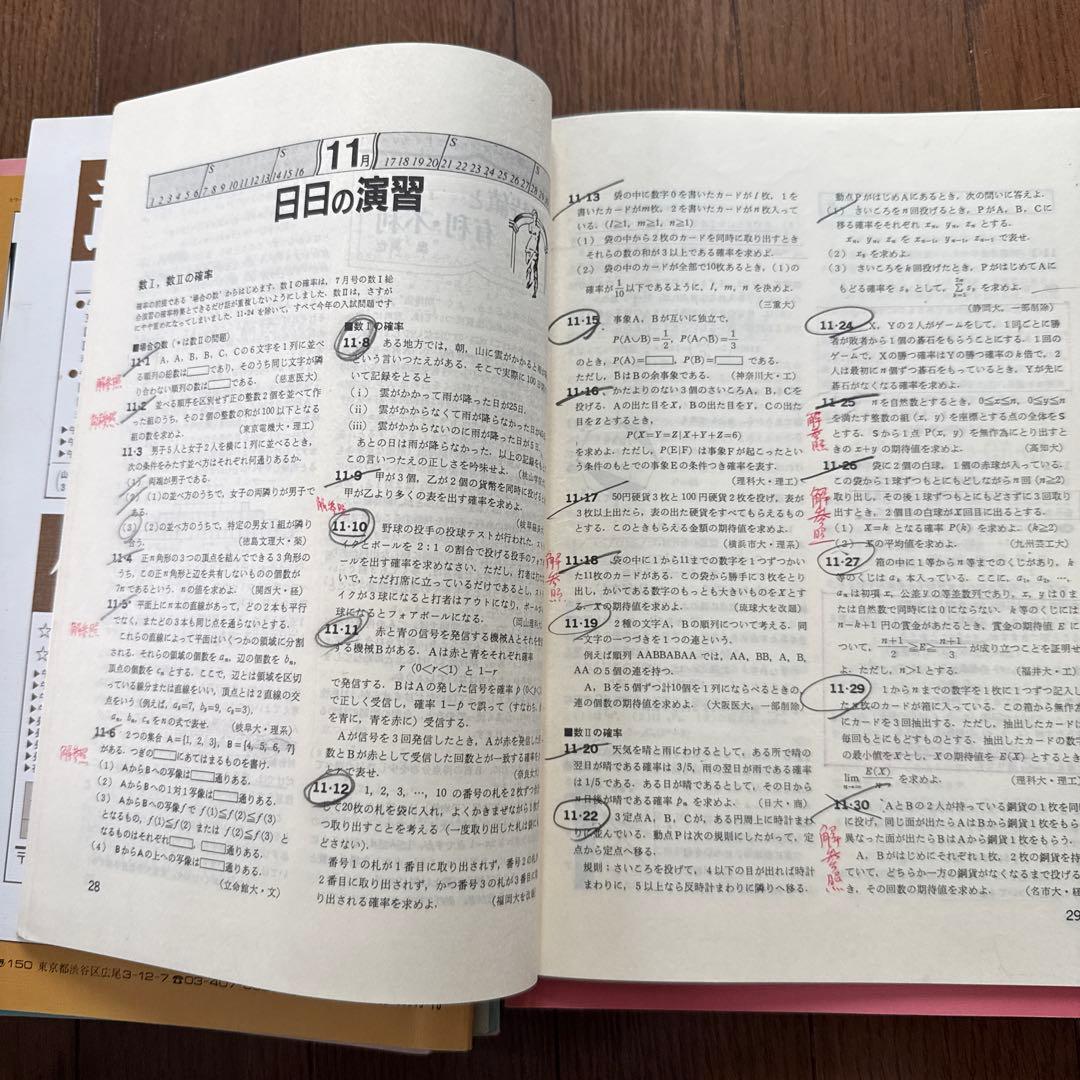 11月
S
S
S
1 2 3 4 5 6 7 8 9 10 11 12 13 14 15 16
17 18 19 20 21 22 23 24 25 26 27 28
日日の演習
数Ⅰ，数Ⅱの確率
確率の前提である“場合の数”からはじめます．数Ⅰの確率は，7月号の数Ⅰ総
必演習の確率特集とできるだけ話が重複しないようにしました．数Ⅱは，さすが
にやや重めになってしまいました．11・24を除いて，すべて今年の入試問題です
■場合の数（＊は数Ⅱの問題）
11・1 A，A，B，B，C，Cの6文字を1列に並べ
る順列の総数は□であり，そのうち同じ文字が隣
り合わない順列の数は□である．（慈恵医大）
解参照
11・2 並べる順序を区別せず正の整数2個を並べて作
った組のうち，その2個の整数の和が100以下となる
組の数を求めよ．（東京電機大・理工）
11・3 男子5人と女子2人を横に1列に並べるとき，
次の条件をみたす並べ方はそれぞれ何通りあるか．
(1) 両端が男子である．
(2) (1)の並べ方のうちで，女子の両隣りが男子で
ある．
(3) (2)の並べ方のうちで，特定の男女1組が隣り
合う．（徳島文理大・薬）
11・4 正n角形の3つの頂点を結んでできる3角形の
うち，この正n角形と辺を共有しないものの個数が
7nであるという．nの値を求めよ．（関西大・経）
11・5* 平面上にn本の直線があって，どの2本も平行
でなく，またどの3本も同じ点を通らないとする．
解参照
これらの直線によって平面はいくつかの領域に分割
される．それらの領域の個数をan，辺の個数をbn，
頂点の個数をcnとする．ここで，辺とは領域を区切
っている線分または直線をいい，頂点とは2直線の交
点をいう（例えば，a3=7，b3=9，c3=3）．
an，bn，cnをnの式で表せ．（岐阜大・理系）
11・6 2つの集合 A={1, 2, 3}，B={4, 5, 6, 7}
がある．つぎの□にあてはまるものを書け．
解参照
(1) AからBへの写像は□通りある．
(2) AからBへの1対1写像は□通りある．
(3) AからBへの写像fで f(1)≦f(2)≦f(3)
となるもの，f(1)≦f(2) または f(2)≦f(3) と
なるものはそれぞれ□，□通りある．
(4) BからAの上への写像は□通りある．
（立命館大・文）
28
■数Ⅰの確率
11・8 ある地方では，朝，山に雲がかかると
という言いつたえがある．そこで実際に100
いて記録をとると
(ⅰ) 雲がかかって雨が降った日が25日，
(ⅱ) 雲がかからなくて雨が降らなかった日が
(ⅲ) 雲がかからないのに雨が降った日が5日，
あとの日は雨が降らなかった．以上の記録を
この言いつたえの正しさを吟味せよ．（桃山学院
11・9 甲が3個，乙が2個の貨幣を同時に投げる
甲が乙より多くの表を出す確率を求めよ．
11・10 野球の投手の投球テストが行われた．
イクとボールを2：1の割合で投げる投手のフォ
ールを出す確率を求めなさい．ただし，打者は
いで，ただ打席に立っているだけであるとし，
イクが3球になると打者はアウトになり，ボール
球になるとフォアボールになる．
11・11 赤と青の信号を発信する機械Aとそれを
する機械Bがある．Aは赤と青をそれぞれ確率
r (0<r<1) と 1−r
で発信する．BはAの発した信号を確率
で正しく受信し，確率 1−p で誤って（すなわち
を青に，青を赤に）受信する．
Aが信号を3回発信したとき，Aが赤を発信し
数とBが赤として受信した回数とが一致する確率を
とrで表せ．（奈良
11・12 1，2，3，…，10 の番号の札を2枚ずつ
して20枚の札を袋に入れ，よくかきまぜながら1枚
つ取り出すことを考える（一度取り出した札は袋に
どさない）．
番号1の札が1番目に取り出されず，番号2の札
2番目に取り出されず，かつ番号3の札が3番目に
り出される確率を求めよ．（福岡大を改題
11・13 袋の中に数字0を書いたカードがl枚，1を
書いたカードがm枚，2を書いたカードがn枚入って
いる．(l≧1，m≧1，n≧1)
(1) 袋の中から2枚のカードを同時に取り出すとき
それらの数の和が3以上である確率を求めよ．
(2) 袋の中のカードが全部で10枚あるとき，(1)の
確率が1/10以下であるように，l，m，nを決めよ．
（三重大）
11・15 事象A，Bが互いに独立で，
P(A∪B)=1/2，P(A∩B)=1/3
のとき，P(A)=□，P(B)=□である．
ただし，B̄はBの余事象である．（神奈川大・工）
11・16 かたよりのない3個のさいころA，B，Cを
投げる．Aの出た目をX，Bの出た目をY，Cの出た
目をZとするとき，
P(X=Y=Z|X+Y+Z=6)
を求めよ．ただし，P(E|F)は事象Fが起こったと
いう条件のもとでの事象Eの条件つき確率を表す．
（理科大・理工）
11・17 50円硬貨3枚と100円硬貨2枚を投げ，表が
3枚以上出たら，表の出た硬貨をすべてもらえるもの
とする．このときもらえる金額の期待値を求めよ．
（横浜市大・理系）
11・18 袋の中に1から11までの数字を1つずつかい
た11枚のカードがある．この袋から勝手に3枚をとり
出し，かいてある数字のもっとも大きいものをXとす
る．Xの期待値を求めよ．（琉球大を改題）
解参照
11・19 2種の文字A，Bの順列について考える．同一
文字のひとつづきを1つの連という．
例えば順列 AABBABAA では，AA，BB，A，B，
AA の5個の連を持つ．
A，Bを5個ずつ計10個を1列にならべるときの，
連の個数の期待値を求めよ．（大阪医大，一部削除）
■数Ⅱの確率
11・20 天気を晴と雨にわけるとして，ある所で晴の
翌日が晴である確率は3/5，雨の翌日が雨である確率
は1/5である．ある日が晴であるとして，その日から
n日後が晴である確率pnを求めよ．（日大・商）
11・22 3定点A，B，Cが，ある円周上に時計まわ
りに並んでいる．動点Pは次の規則にしたがって，定
点から定点へ移る．
規則：さいころを投げて，4以下の目が出れば時計
まわりに，5以上なら反時計まわりに隣りへ移る．
動点PがはじめAにあるとき，次の問いに答えよ．
(1) さいころをn回投げるとき，PがA，B，Cに
移る確率をそれぞれ xn，yn，zn とする．
xn，yn，zn を xn−1，yn−1，zn−1 で表せ．
(2) xn を求めよ．
(3) さいころをk回投げたとき，PがはじめてAに
もどる確率を sk として，Σsk を求めよ．
（静岡大，一部削除）
11・24 X，Yの2人がゲームをして，1回ごとに勝
者が敗者から1個の碁石をもらうことにする．1回の
ゲームで，Xの勝つ確率はYの勝つ確率のk倍で，2
人は最初にn個ずつ碁石をもっているとき，Yが先に
碁石がなくなる確率を求めよ．
11・25 nを自然数とするとき，0≦x≦n，0≦y≦n
を満たす整数の組 (x, y) を座標とする点の全体をS
とする．Sから1点 P(x, y) を無作為にとり出すと
きの x+y の期待値を求めよ．（高知大）
解参照
11・26 袋に2個の白球，1個の赤球が入っている．
この袋から1球ずつもとにもどしながらn回 (n≧2)
取り出し，その後1球ずつもとにもどさずに3回取り
出すとき，2個目の白球がX回目に出るとする．
(1) X=k となる確率 P(k) を求めよ．(k≧2)
(2) Xの平均値を求めよ．（九州芸工大）
解参照
11・27 箱の中に1等からn等までのくじがあり，k
等のくじは ak 本入っている．ここに，a1，a2，…，
anは初項x，公差yの等差数列であり，x，yは0ま
たは自然数で同時には0にならない．k等のくじには
n−k+1 円の賞金があたるとき，賞金の期待値 E
ついて，(n+1)/2≧E≧(n+2)/3 が成り立つことを証明せ
よ．ただし，n>1とする．（福井大・工）
11・29 1からnまでの数字を1枚に1つずつ記入し
たn枚のカードが箱に入っている．この箱から無作為
にカードを3回抽出する．ただし，抽出したカードは
毎回もとにもどすものとする．抽出したカードの数の
の最小値をXとし，Xの期待値を E(X) とするとき
lim n→∞ E(X)/n を求めよ．（理科大・理工
11・30 AとBの2人が持っている銅貨の1枚を同時
に投げ，同じ面が出たらAはBから銅貨1枚をもらい
異なった面が出たらBはAから銅貨1枚をもらう．
A，Bがはじめにそれぞれ1枚，2枚の銅貨を持
ていて，どちらか一方の銅貨がなくなるまで投げる
き，その回数の期待値を求めよ．（名市大・経
解参照
29
150 東京都渋谷区広尾3-12-7 ☎03-407-